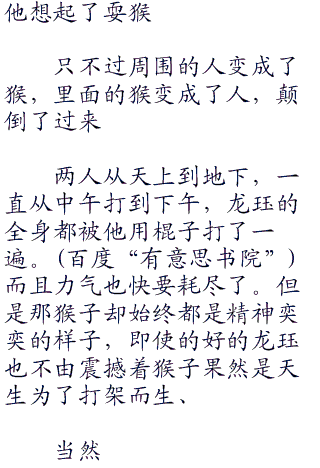 他想起了耍猴
只不过周围的人变成了
猴，里面的猴变成了人，颠
倒了过来
两人从天上到地下，一
直从中午打到下午，龙珏的
全身都被他用棍子打了一
遍。(百度“有意思书院”)
而且力气也快要耗尽了。但
是那猴子却始终都是精神奕
奕的样子，即使的好的龙珏
也不由震撼着猴子果然是天
生为了打架而生、
当然